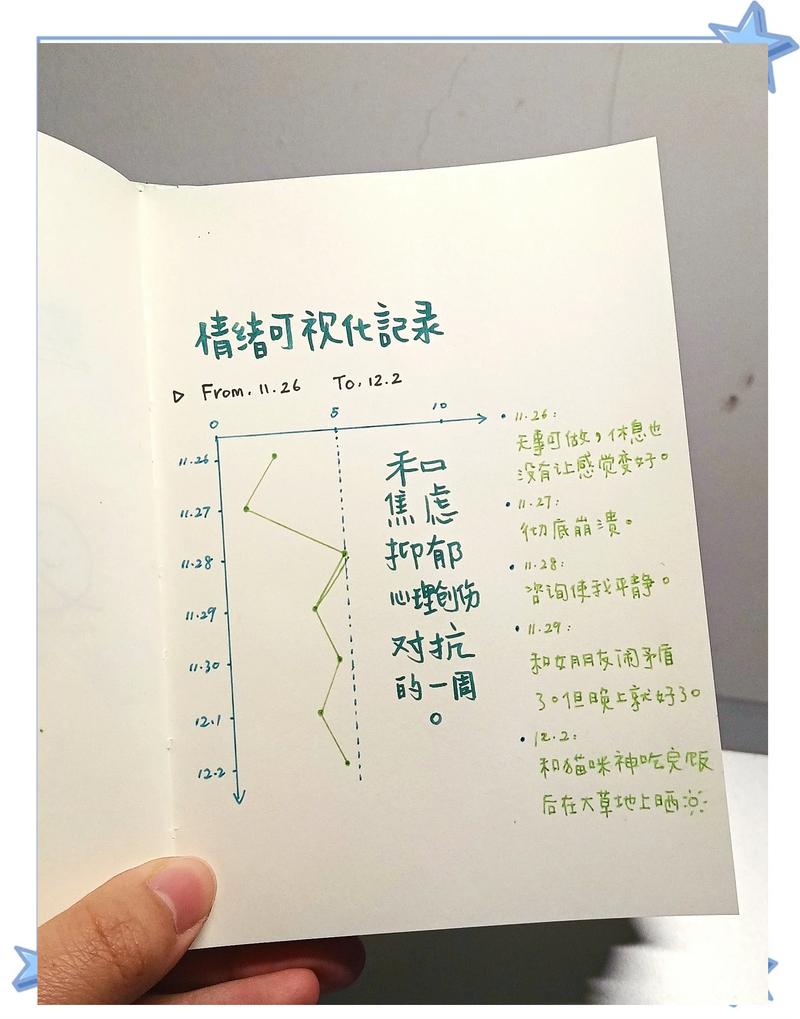 情绪可视化記录
▷ From. 11.26 To. 12.2
0 5 10
11.26
11.27
11.28
11.29
11.30
12.1
12.2
和
焦虑
抑郁
心理创伤
对抗
的一周
。
• 11.26:
无事可做，休息也
没有让感觉变好。
• 11.27:
彻底崩溃。
• 11.28:
咨询使我平静。
• 11.29:
和女朋友闹矛盾
了。但晚上就好了。
• 12.2:
和猫咪神吃完饭
后在大草地上晒